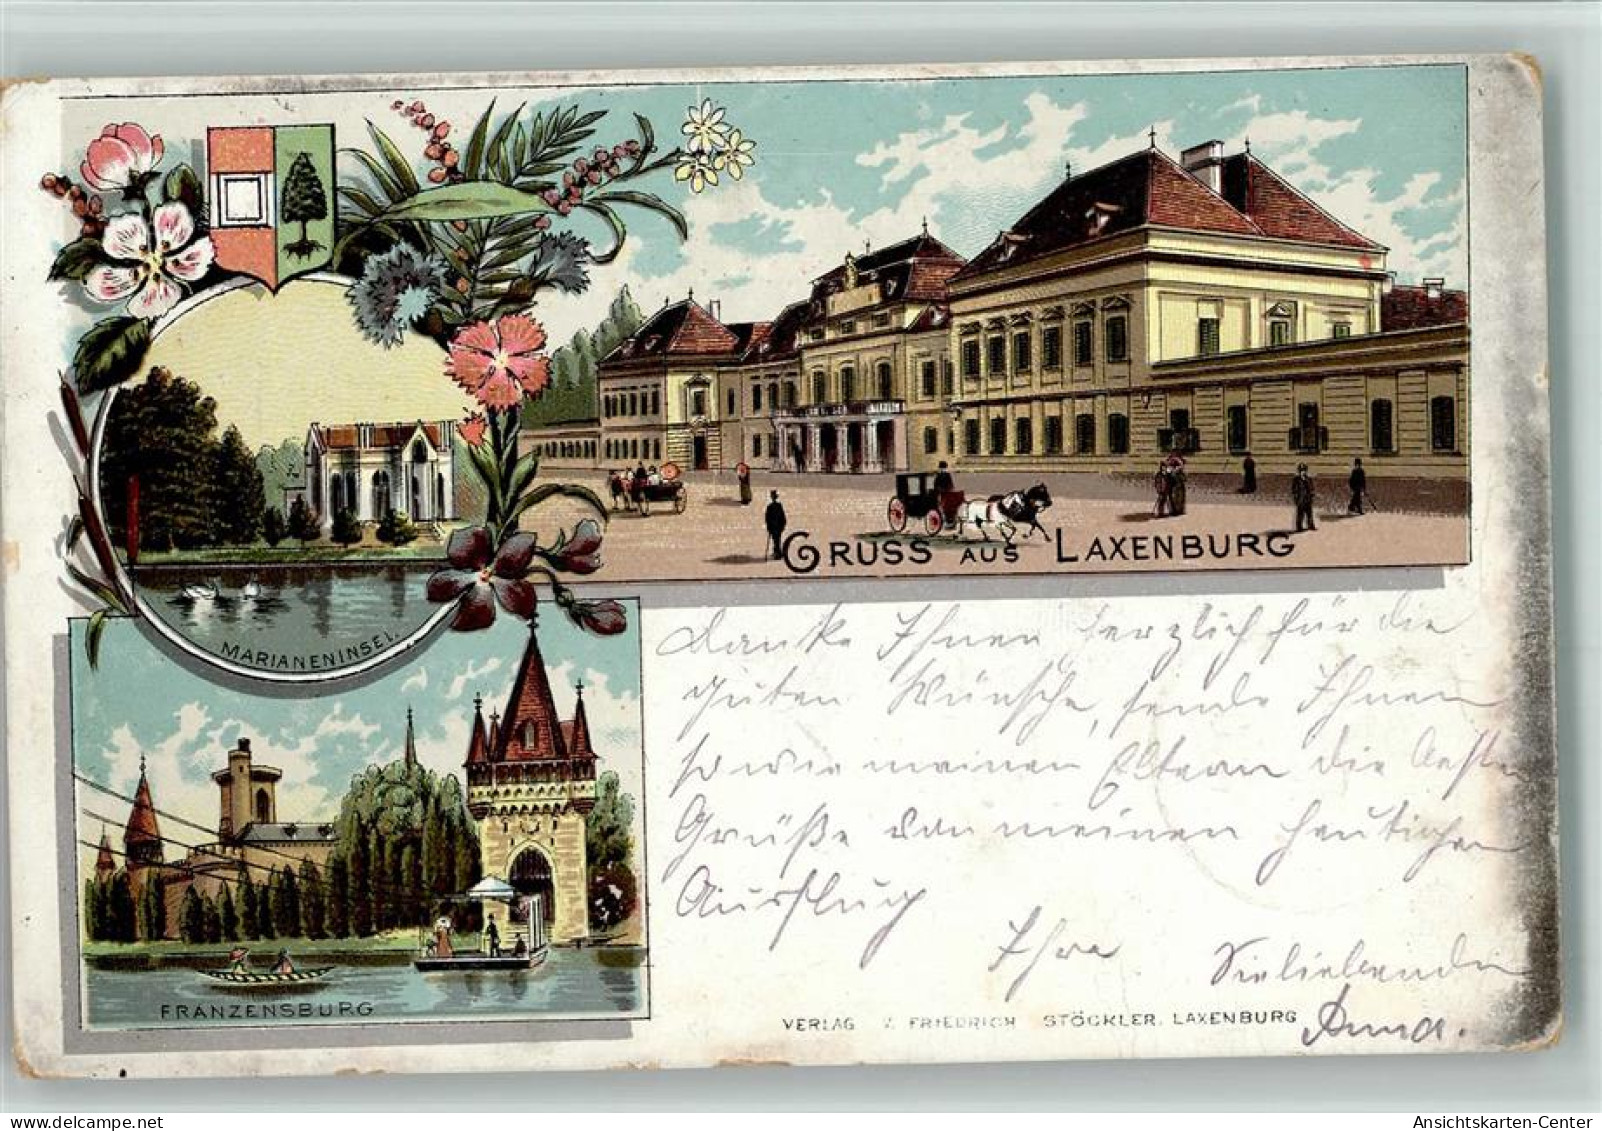 GRUSS AUS LAXENBURG
MARIANENINSEL.
FRANZENSBURG
Danke Ihnen herzlich für die
guten Wünsche, sende Ihnen
sowie meinen Eltern die besten
Grüße von meinem heutigen
Ausflug
Ihre Sie liebende
Anna.
VERLAG V. FRIEDRICH STÖCKLER, LAXENBURG
Ansichtskarten-Center